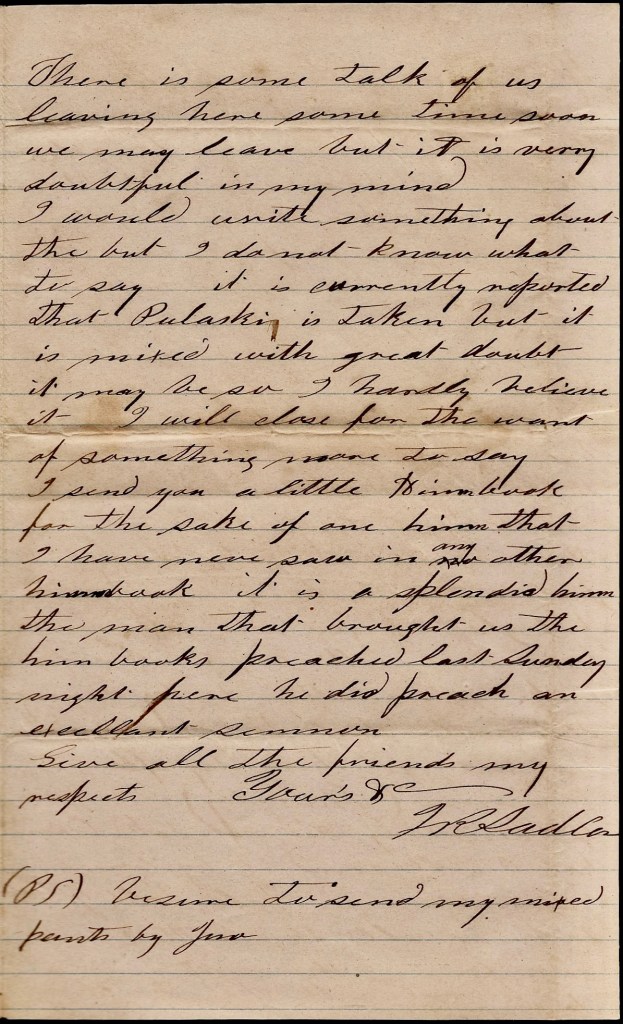 There is some talk of us
leaving here some time soon
we may leave but it is verry
doubtful in my mind
I would write something about
the but I do not know what
to say it is currently reported
that Pulaski is taken but it
is mixed with great doubt
it may be so I hardly believe
it I will close for the want
of something more to say
I send you a little Himnbook
for the sake of one himn that
I have neve saw in any other
himnbook it is a splendid himn
the man that brought us the
him books preached last Sunday
night here he did preach an
excellant sermon
Give all the friends my
respects Your's &c
J R Sadler
(PS) besure to send my mixed
pants by Jno